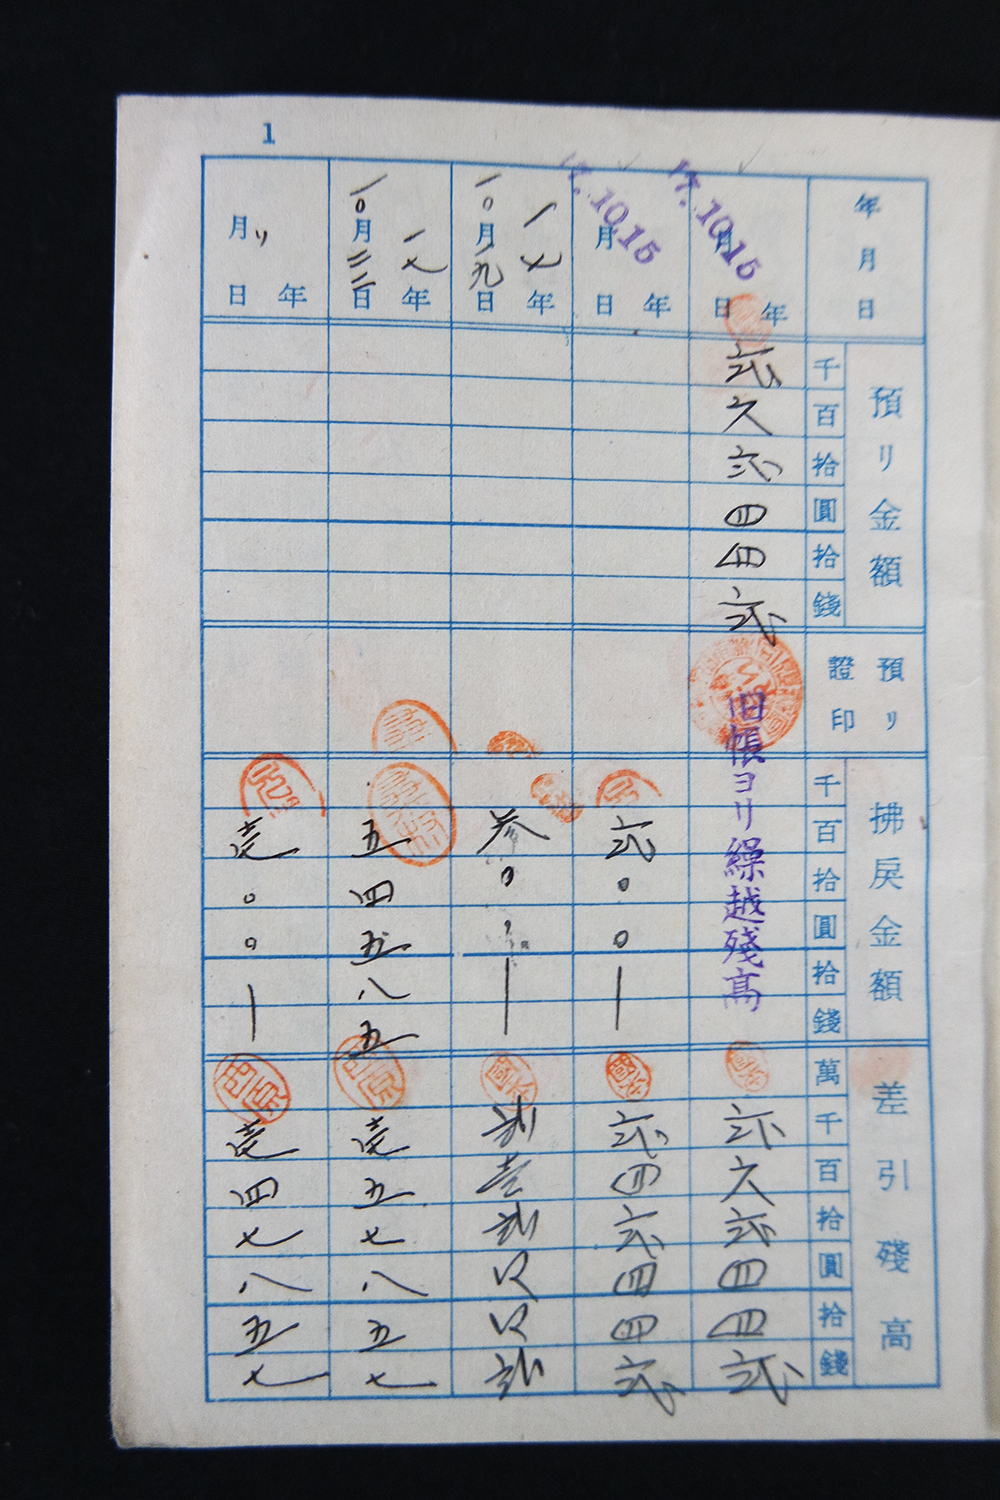 1
年月日
預リ金額
千百拾圓拾錢
預リ
證印
拂戻金額
千百拾圓拾錢
差引残高
萬千百拾圓拾錢
17.10.15
年
月日
弐六弐四四弐
旧帳ヨリ繰越残高
弐六弐四四弐
17.10.15
年
月日
弐〇〇—
弐四弐四四弐
一七年
一〇月一九日
参〇〇—
弐壱弐四四弐
一七年
一〇月二三日
五四五八五
壱五七八五七
年
月〃日
壱〇〇—
壱四七八五七